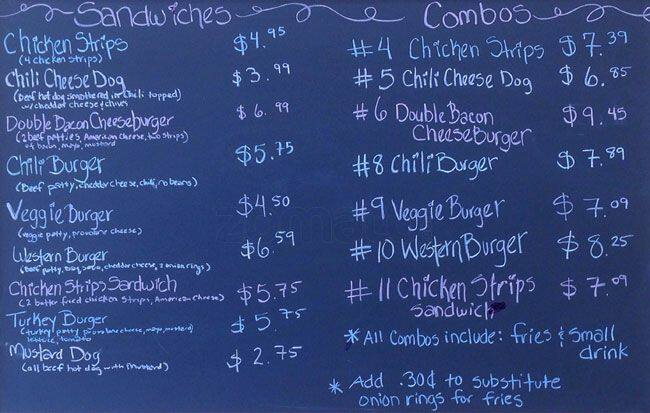 Sandwiches
Chicken Strips $4.95
(4 chicken strips)
Chili Cheese Dog $3.99
(Beef hot dog smothered in chili topped)
w/cheddar cheese & chives
Double Bacon Cheeseburger $6.99
(2 beef patties, American cheese, two strips)
of bacon, mayo, mustard
Chili Burger $5.75
(Beef patty, cheddar cheese, chili, no beans)
Veggie Burger $4.50
(veggie patty, provolone cheese)
Western Burger $6.59
(Beef patty, BBQ sauce, cheddar cheese, 2 onion rings)
Chicken Strips Sandwich $5.75
(2 batter fried chicken strips, American cheese)
Turkey Burger $5.75
(turkey patty, provolone cheese, mayo, mustard
lettuce, tomato
Mustard Dog $2.75
(all beef hot dog with mustard)
Combos
#4 Chicken Strips $7.39
#5 Chili Cheese Dog $6.85
#6 Double Bacon $9.45
Cheeseburger
#8 Chili Burger $7.89
#9 Veggie Burger $7.09
#10 Western Burger $8.25
#11 Chicken Strips $7.09
Sandwich
*All Combos include: fries & small
drink
* Add .30¢ to substitute
onion rings for fries